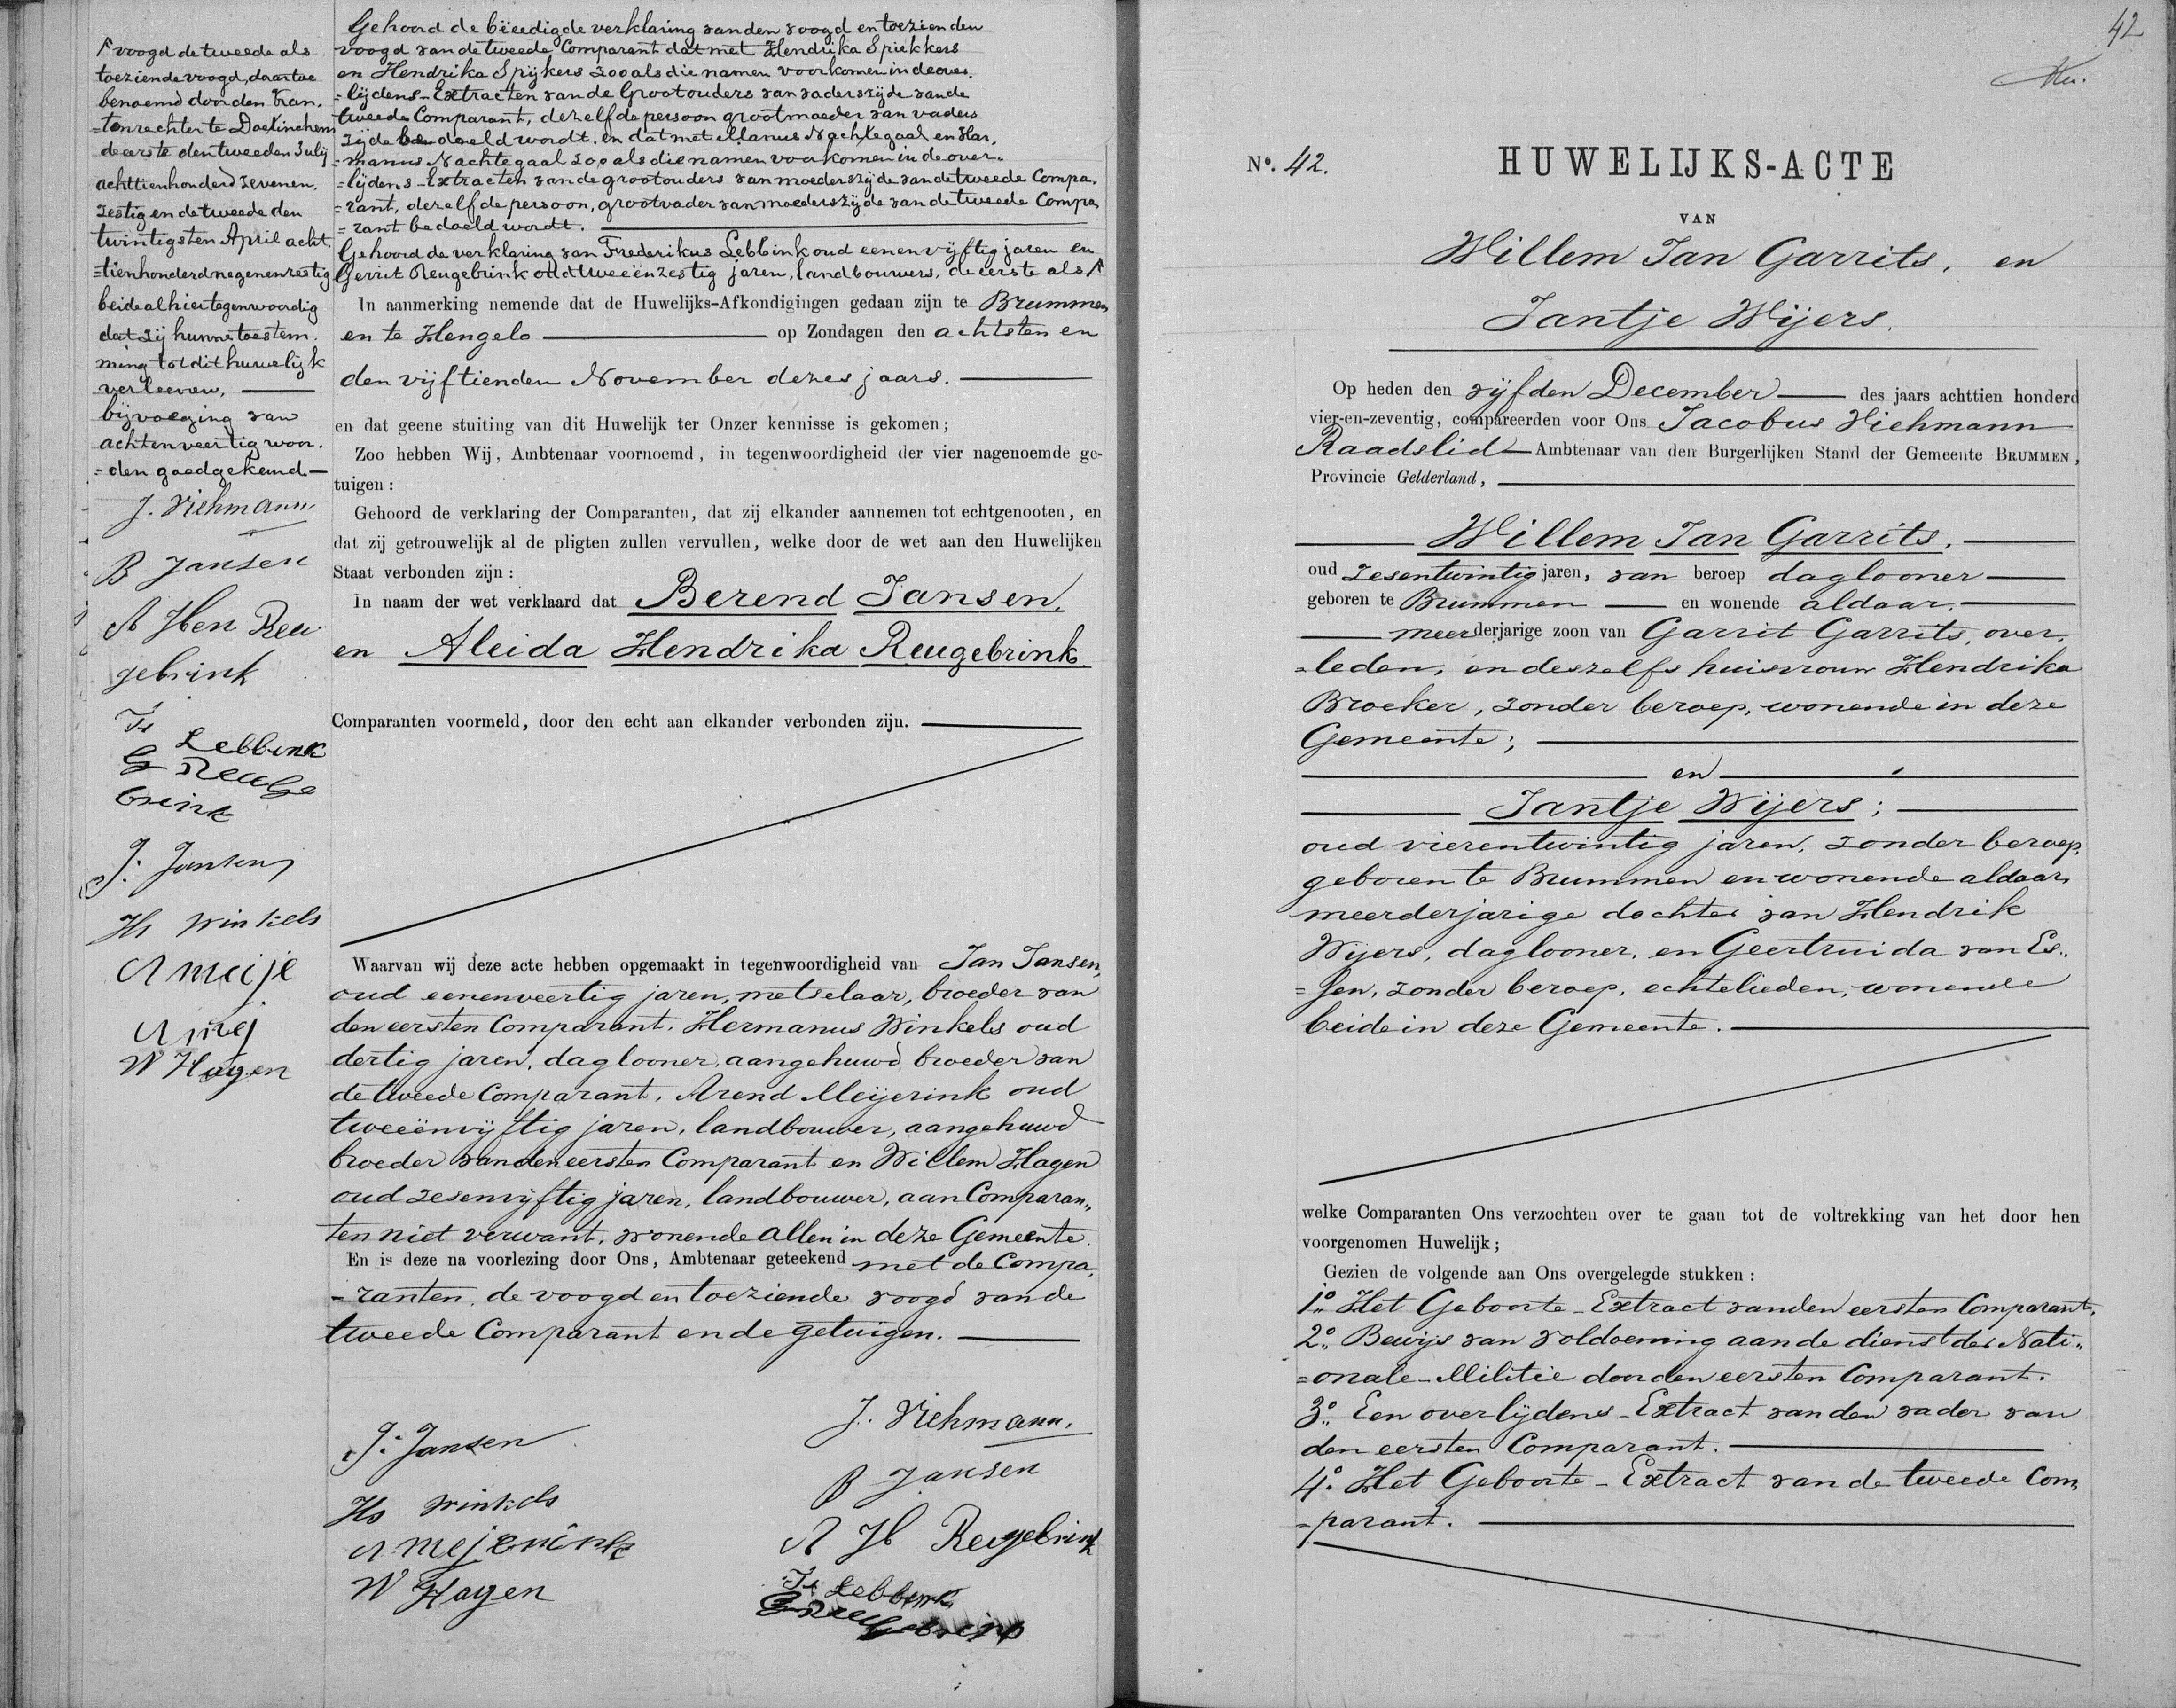 Gehoord de bëeedigde verklaring van den voogd en toezienden
voogd van de tweede Comparant dat met Hendrika Spiekkers
en Hendrika Spijkers zoo als die namen voorkomen in de over-
=lijdens-Extracten van de Grootouders van vaderszijde van de
tweede Comparant, dezelfde persoon grootmoeder van vaders
zijde bedoeld wordt, en dat met Manus Nachtegaal en Har-
=manus Nachtegaal zoo als die namen voorkomen in de over-
=lijdens-Extracten van de grootouders van moederszijde van de tweede Compa-
=rant, dezelfde persoon, grootvader van moederszijde van de tweede Compa-
=rant bedoeld wordt.
Gehoord de verklaring van Frederikus Lebbink oud eenenvijftig jaren en
Gerrit Reugebrink oud tweeënzestig jaren, landbouwers, de eerste als
voogd de tweede als
toeziende voogd, daartoe
benoemd door den Kan-
=tonrechter te Doetinchem
de eerste den tweeden Julij
achttienhonderd zevenen-
zestig en de tweede den
twintigsten April acht-
=tienhonderd negenenzestig
beide alhier tegenwoordig
dat zij hunne toestem-
ming tot dit huwelijk
verleenen,
bijvoeging van
achtenveertig woor-
=den goedgekeurd
J. Viehmann
B Jansen
A Hen Reu
gebrink
Fs Lebbink
G Reuge
brink
J. Jansen
Hs Winkels
A meije
A meij
W Hagen
In aanmerking nemende dat de Huwelijks-Afkondigingen gedaan zijn te Brummen
en te Hengelo op Zondagen den achtsten en
den vijftienden November dezes jaars.
en dat geene stuiting van dit Huwelijk ter Onzer kennisse is gekomen;
Zoo hebben Wij, Ambtenaar voornoemd, in tegenwoordigheid der vier nagenoemde ge-
tuigen:
Gehoord de verklaring der Comparanten, dat zij elkander aannemen tot echtgenooten, en
dat zij getrouwelijk al de pligten zullen vervullen, welke door de wet aan den Huwelijken
Staat verbonden zijn:
In naam der wet verklaard dat Berend Jansen,
en Aleida Hendrika Reugebrink
Comparanten voormeld, door den echt aan elkander verbonden zijn.
Waarvan wij deze acte hebben opgemaakt in tegenwoordigheid van Jan Jansen,
oud eenenveertig jaren, metselaar, broeder van
den eersten Comparant. Hermanus Winkels oud
dertig jaren, daglooner, aangehuwd broeder van
de tweede Comparant. Arend Meijerink oud
tweeënvijftig jaren, landbouwer, aangehuwd
broeder van den eersten Comparant en Willem Hagen
oud zesenvijftig jaren, landbouwer, aan Comparan„
ten niet verwant, wonende allen in deze Gemeente.
En is deze na voorlezing door Ons, Ambtenaar geteekend met de Compa-
=ranten, de voogd en toeziende voogd van de
tweede Comparant en de getuigen.
J. Jansen
Hs Winkels
A Mejerink
W Hagen
J. Viehmann.
B Jansen
A H Reugebrink
Fs Lebbenk
G Reugebrink
42
No. 42.
HUWELIJKS-ACTE
VAN
Willem Jan Garrits, en
Jantje Wijers.
Op heden den vijfden December des jaars achttien honderd
vier-en-zeventig, compareerden voor Ons Jacobus Viehmann
Raadslid Ambtenaar van den Burgerlijken Stand der Gemeente BRUMMEN,
Provincie Gelderland,
Willem Jan Garrits,
oud zesentwintig jaren, van beroep daglooner
geboren te Brummen en wonende aldaar,
meerderjarige zoon van Garrit Garrits, over-
=leden, en deszelfs huisvrouw Hendrika
Broeker, zonder beroep, wonende in deze
Gemeente;
en
Jantje Wijers;
oud vierentwintig jaren, zonder beroep,
geboren te Brummen en wonende aldaar,
meerderjarige dochter van Hendrik
Wijers, daglooner, en Geertruida van Es„
=sen, zonder beroep, echtelieden, wonende
beide in deze Gemeente.
welke Comparanten Ons verzochten over te gaan tot de voltrekking van het door hen
voorgenomen Huwelijk;
Gezien de volgende aan Ons overgelegde stukken:
1o. Het Geboorte-Extract van den eersten Comparant.
2o. Bewijs van voldoening aan de dienst der Nati„
=onale-Militie door den eersten Comparant.
3o. Een overlijdens-Extract van den vader van
den eersten Comparant.
4o. Het Geboorte-Extract van de tweede Com„
=parant.